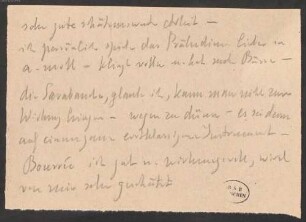 sehr gute schätzenswerte Arbeit –
ich persönlich spiele das Präludium lieber in
a-moll – klingt voller u. hat mehr
die Sarabande, glaub ich, kann man nicht zur
Wirkung bringen – wegen zu dünn – es sei denn
auf einem ganz erstklassigen Instrument –
Bourrée ist gut u. wirkungsvoll, wird
von mir sehr geschätzt